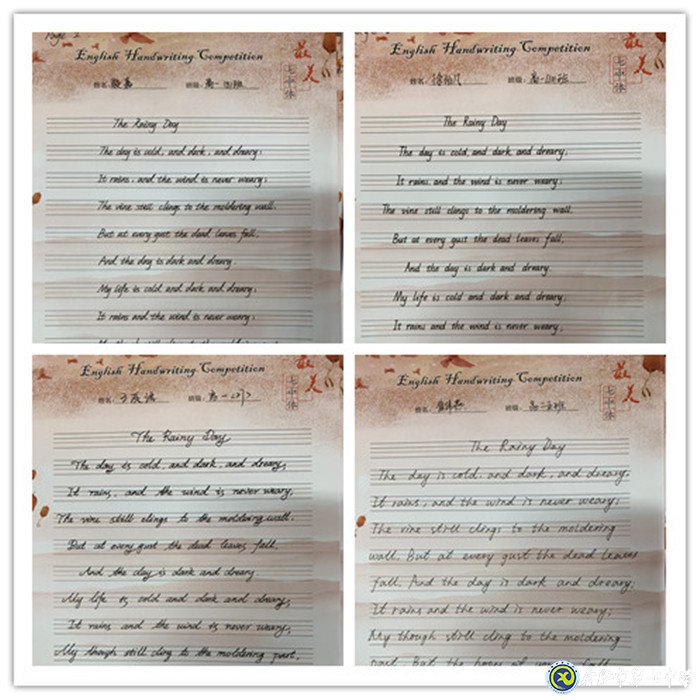 Page 2
English Handwriting Competition
最美
七中体
姓名: 班级: 高一
The Rainy Day
The day is cold, and dark, and dreary;
It rains, and the wind is never weary;
The vine still clings to the moldering wall.
But at every gust the dead leaves fall,
And the day is dark and dreary.
My life is cold and dark and dreary;
It rains and the wind is never weary;
English Handwriting Competition
最美
七中体
姓名: 班级: 高一
The Rainy Day
The day is cold, and dark, and dreary;
It rains, and the wind is never weary;
The vine still clings to the moldering wall.
But at every gust the dead leaves fall,
And the day is dark and dreary.
My life is cold and dark and dreary;
It rains and the wind is never weary;
English Handwriting Competition
最美
七中体
姓名: 班级: 高一
The Rainy Day
The day is cold, and dark, and dreary;
It rains, and the wind is never weary;
The vine still clings to the moldering wall.
But at every gust the dead leaves fall,
And the day is dark and dreary.
My life is cold and dark and dreary;
It rains and the wind is never weary;
My though still cling to the moldering past,
English Handwriting Competition
最美
七中体
姓名: 班级:
The Rainy Day
The day is cold, and dark, and dreary,
It rains, and the wind is never weary;
The vine still clings to the moldering
wall. But at every gust the dead leaves
fall, And the day is dark and dreary;
It rains and the wind is never weary;
My though still cling to the moldering
past. But the hopes of